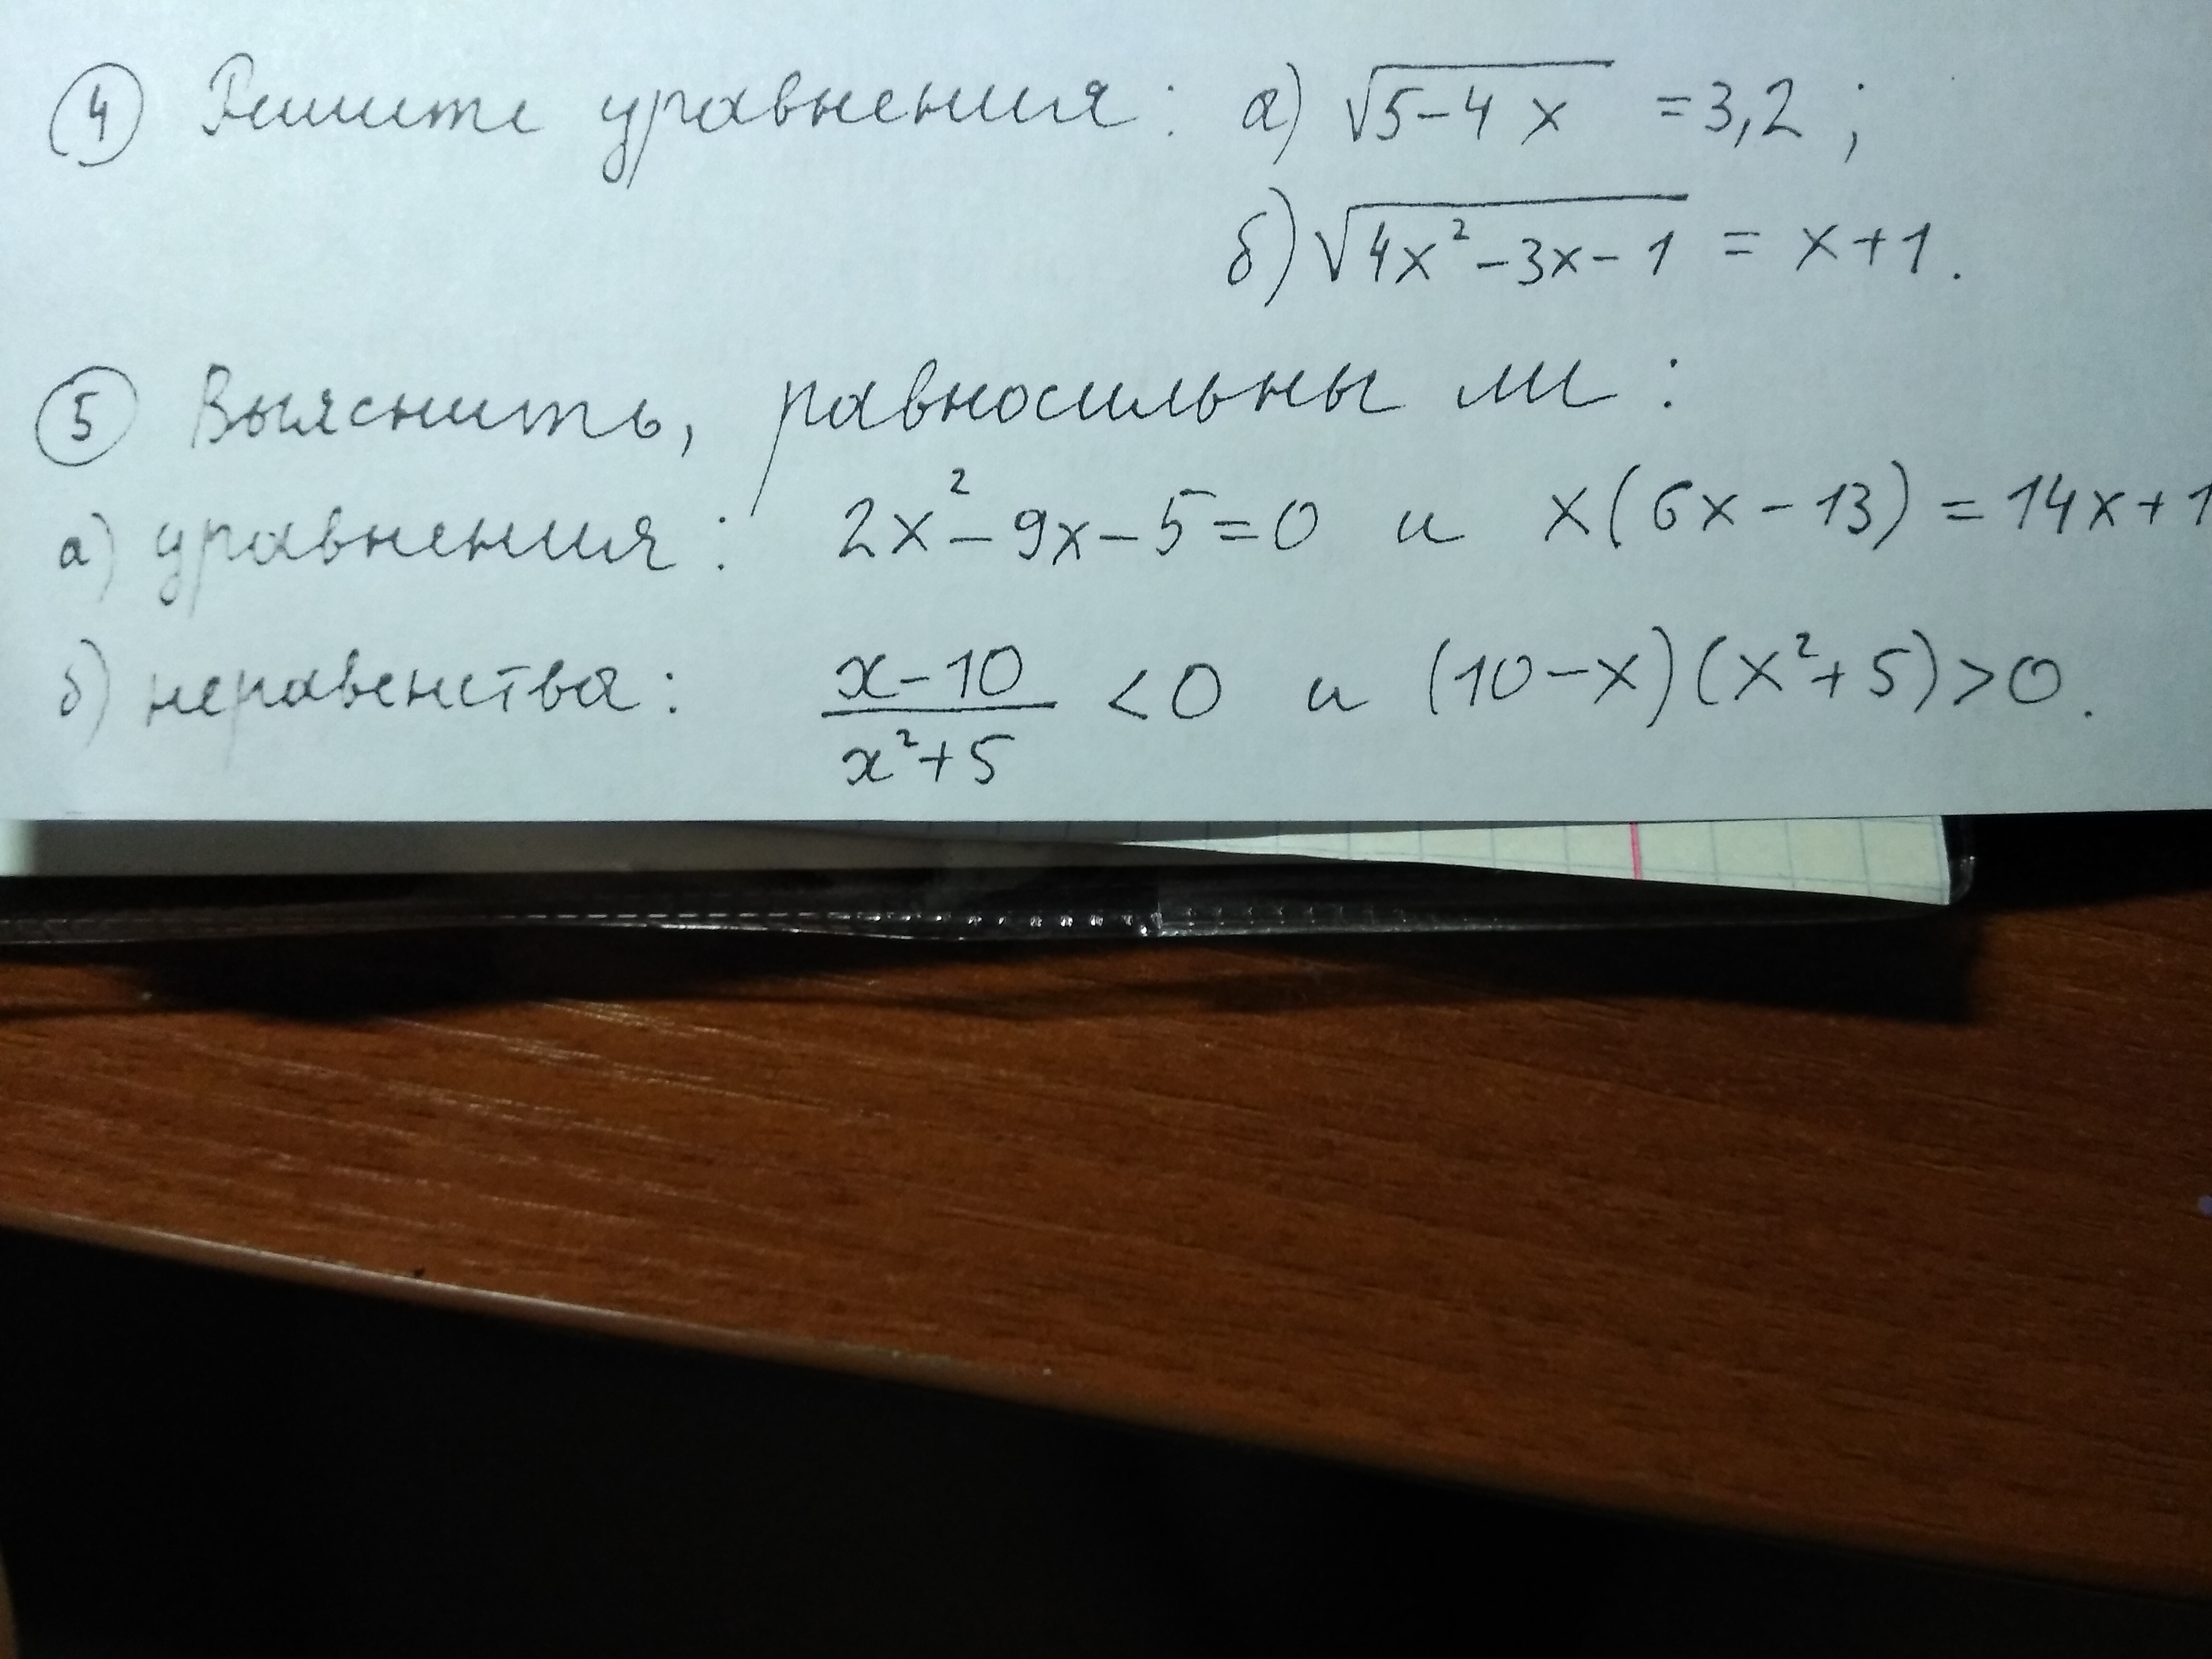 ④ Решите уравнения: а) √(5-4x) = 3,2;
б) √(4x² - 3x - 1) = x + 1.
⑤ Выяснить, равносильны ли:
а) уравнения: 2x² - 9x - 5 = 0 и x(6x - 13) = 14x + 1
б) неравенства: (x-10)/(x²+5) < 0 и (10-x)(x²+5) > 0.